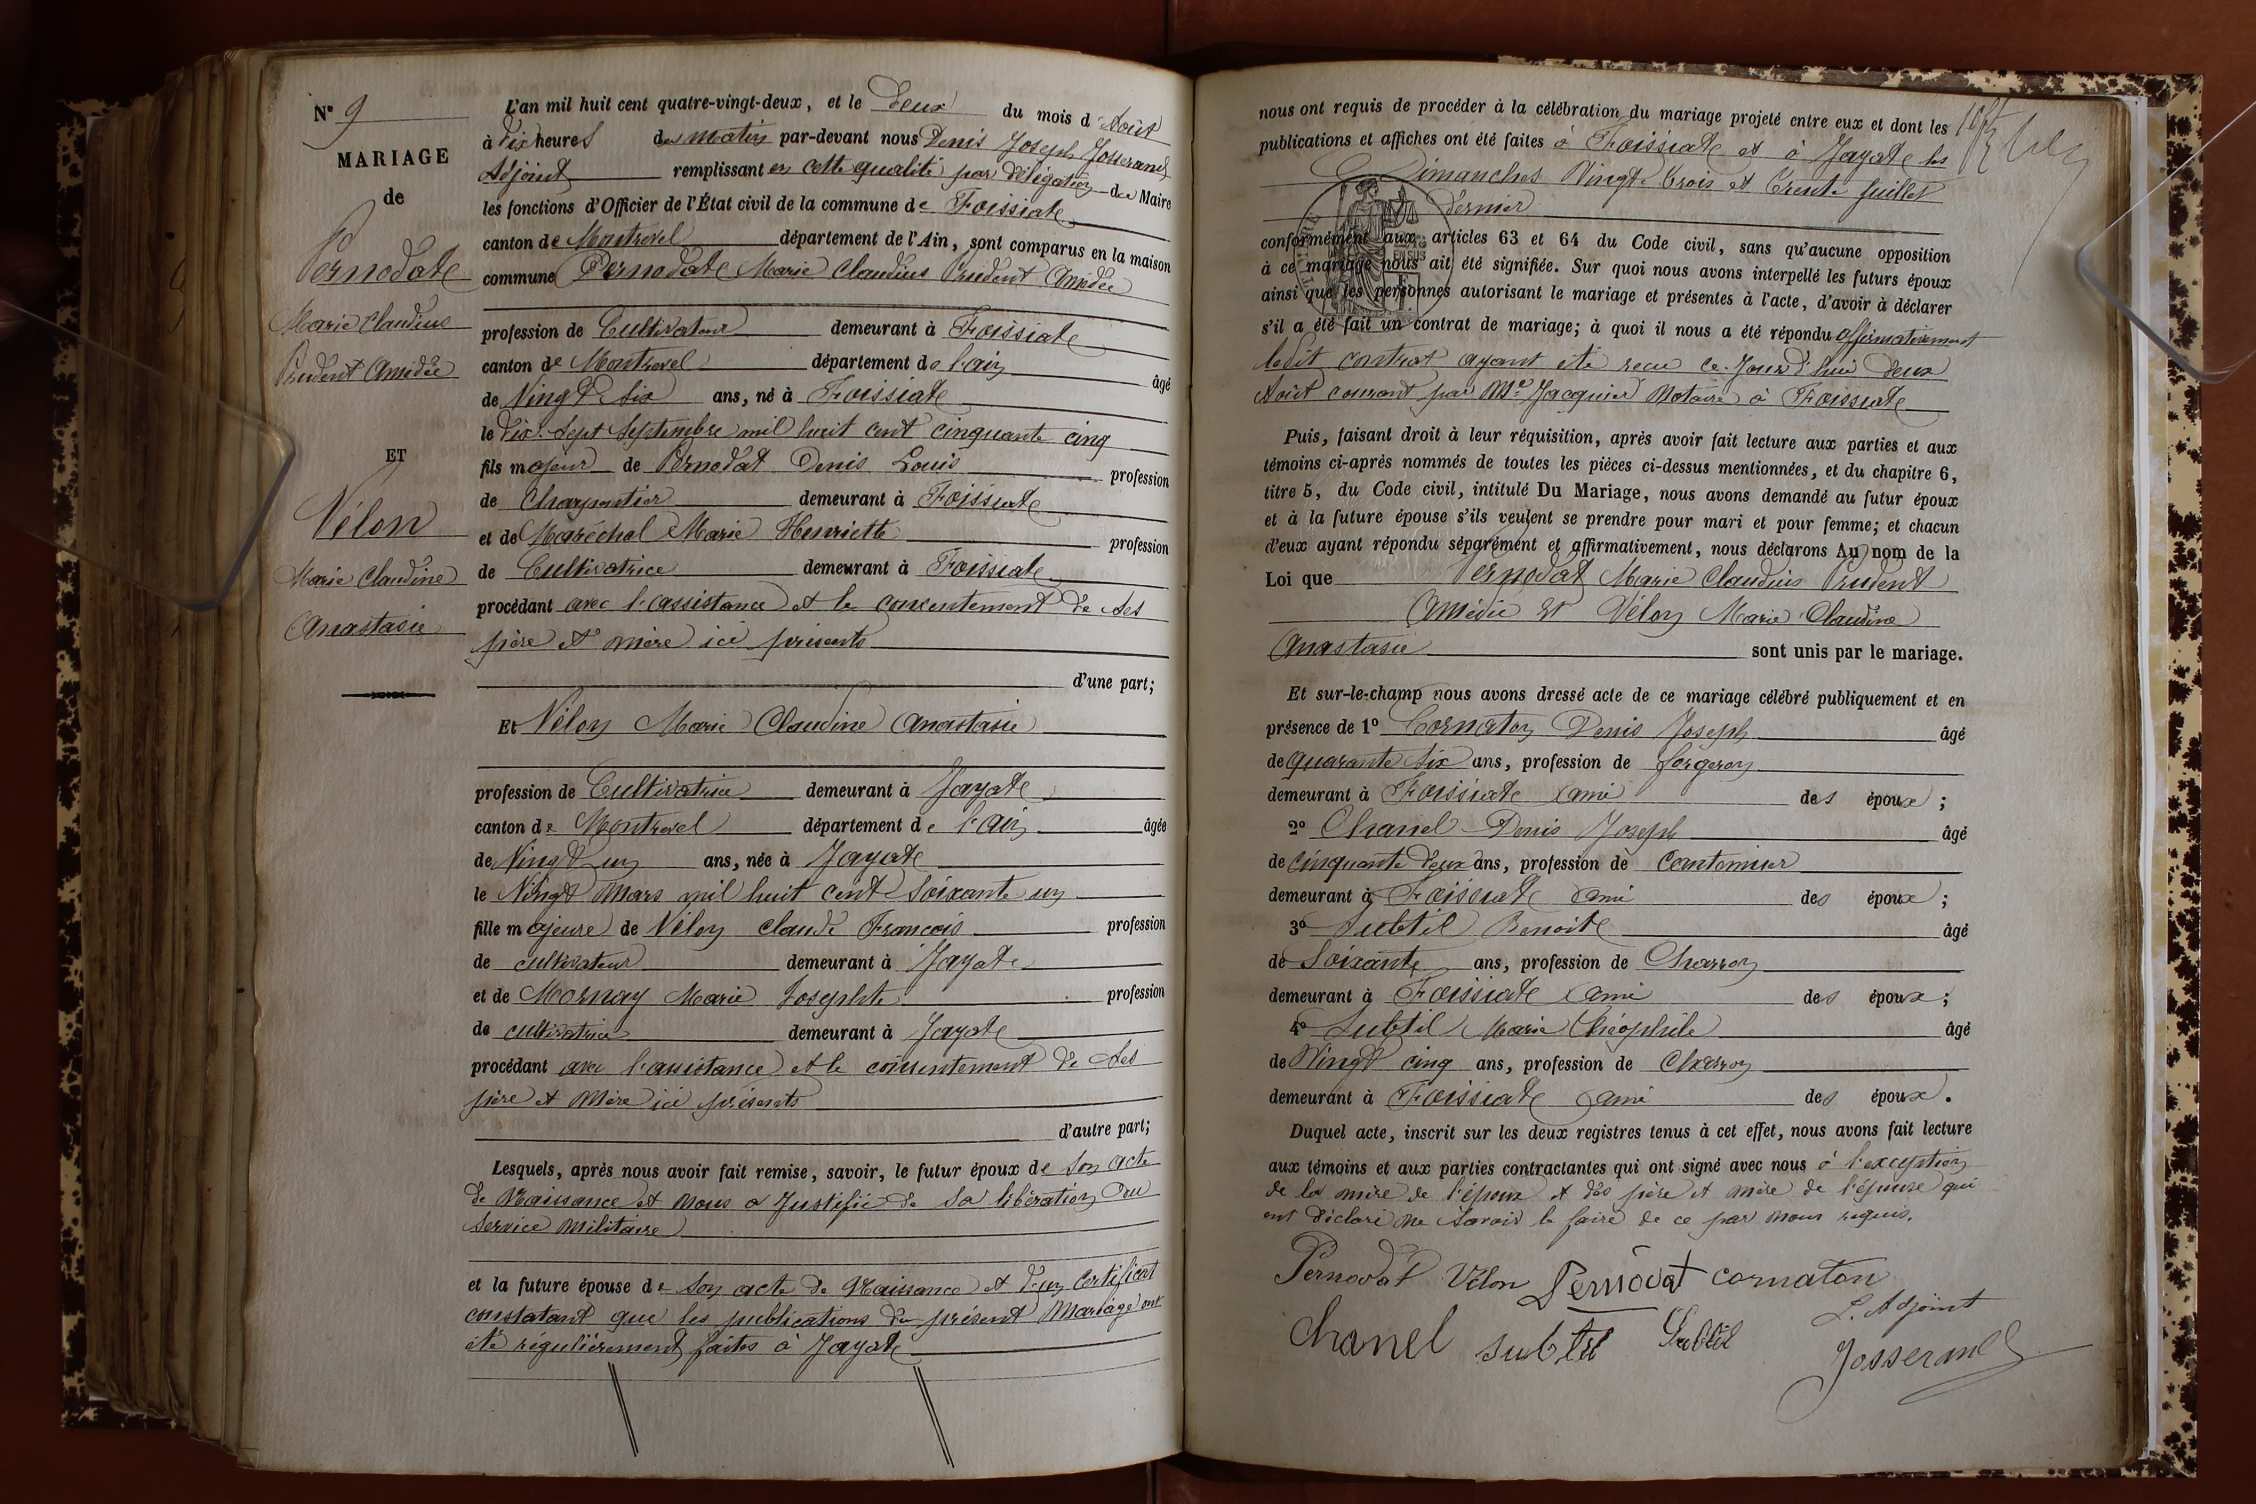 N° 9
MARIAGE
de
Pernodat
Marie Claudius
Prudent Amédée
ET
Vélon
Marie Claudine
Anastasie
L'an mil huit cent quatre-vingt-deux, et le Deux du mois d'Août
à dix heures du matin par-devant nous Denis Joseph Josserand
Adjoint remplissant en cette qualité par délégation du Maire
les fonctions d'Officier de l'État civil de la commune de Foissiat
canton de Montrevel département de l'Ain, sont comparus en la maison
commune Pernodat Marie Claudius Prudent Amédée
profession de Cultivateur demeurant à Foissiat
canton de Montrevel département de l'ain âgé
de Vingt Six ans, né à Foissiat
le dix-sept Septembre mil huit cent cinquante cinq
fils majeur de Pernodat Denis Louis profession
de Charpentier demeurant à Foissiat
et de Maréchal Marie Henriette profession
de Cultivatrice demeurant à Foissiat
procédant avec l'assistance et le consentement de ses
père et mère ici présents
d'une part;
Et Vélon Marie Claudine Anastasie
profession de Cultivatrice demeurant à Jayat
canton de Montrevel département de l'Ain âgée
de Vingt un ans, née à Jayat
le Vingt Mars mil huit cent soixante un
fille majeure de Vélon Claude François profession
de cultivateur demeurant à Jayat
et de Mornay Marie Josephte profession
de cultivatrice demeurant à Jayat
procédant avec l'assistance et le consentement de ses
père et mère ici présents
d'autre part;
Lesquels, après nous avoir fait remise, savoir, le futur époux de son acte
de Naissance et nous a justifié de sa libération du
service militaire
et la future épouse de son acte de Naissance et d'un certificat
constatant que les publications du présent Mariage ont
été régulièrement faites à Jayat
nous ont requis de procéder à la célébration du mariage projeté entre eux et dont les
publications et affiches ont été faites à Foissiat et à Jayat les
Dimanches Vingt trois et trente juillet
dernier
conformément aux articles 63 et 64 du Code civil, sans qu'aucune opposition
à ce mariage nous ait été signifiée. Sur quoi nous avons interpellé les futurs époux
ainsi que les personnes autorisant le mariage et présentes à l'acte, d'avoir à déclarer
s'il a été fait un contrat de mariage; à quoi il nous a été répondu affirmativement
ledit contrat ayant été reçu ce jourd'hui deux
Août courant par Me Jacquier Notaire à Foissiat
Puis, faisant droit à leur réquisition, après avoir fait lecture aux parties et aux
témoins ci-après nommés de toutes les pièces ci-dessus mentionnées, et du chapitre 6,
titre 5, du Code civil, intitulé Du Mariage, nous avons demandé au futur époux
et à la future épouse s'ils veulent se prendre pour mari et pour femme; et chacun
d'eux ayant répondu séparément et affirmativement, nous déclarons Au nom de la
Loi que Pernodat Marie Claudius Prudent
Amédée et Vélon Marie Claudine
Anastasie sont unis par le mariage.
Et sur-le-champ nous avons dressé acte de ce mariage célébré publiquement et en
présence de 1° Cornaton Denis Joseph âgé
de quarante Six ans, profession de forgeron
demeurant à Foissiat ami des époux ;
2° Chanel Denis Joseph âgé
de cinquante deux ans, profession de cantonnier
demeurant à Foissiat ami des époux ;
3° Subtil Benoit âgé
de Soixante ans, profession de Charron
demeurant à Foissiat ami des époux ;
4° Subtil Marie Théophile âgé
de Vingt cinq ans, profession de Charron
demeurant à Foissiat ami des époux .
Duquel acte, inscrit sur les deux registres tenus à cet effet, nous avons fait lecture
aux témoins et aux parties contractantes qui ont signé avec nous à l'exception
de la mère de l'époux et des père et mère de l'épouse qui
ont déclaré ne savoir le faire de ce par nous requis.
Pernodat Vélon Pernodat cornaton
L. Adjoint
Chanel subtil Subtil Josserand